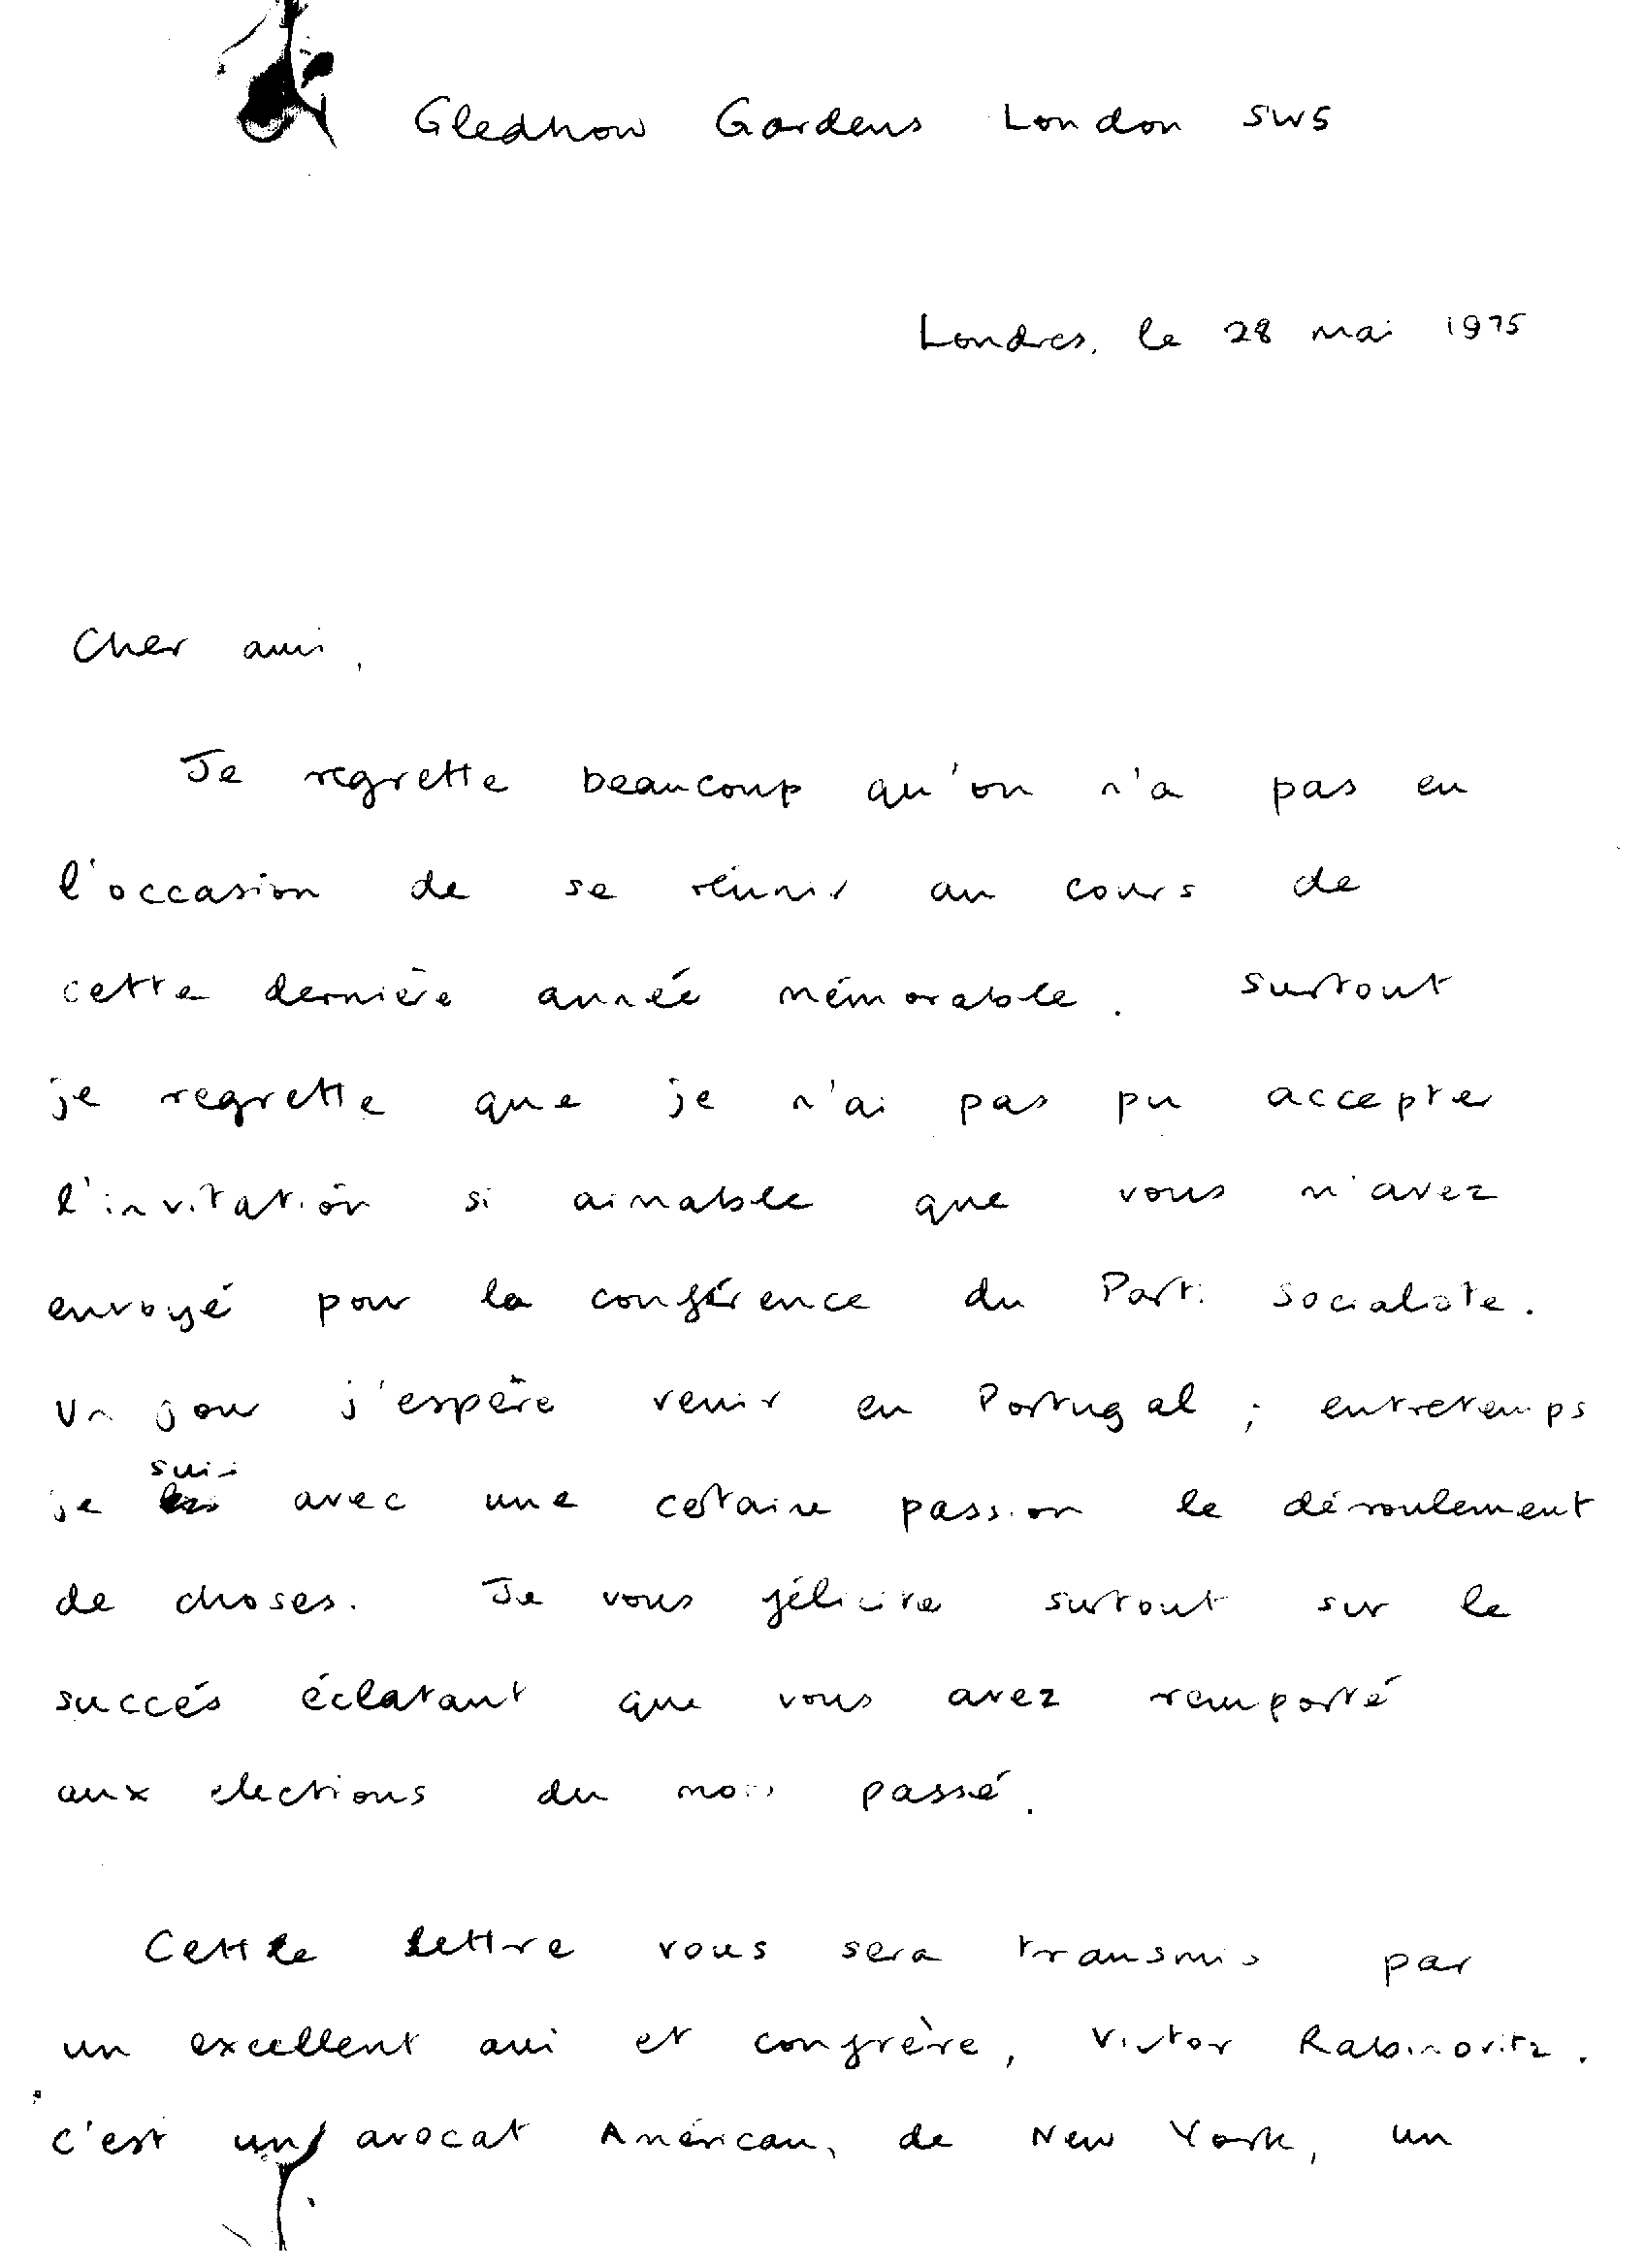 Gledhow Gardens London SW5
Londres, le 28 mai 1975
Cher ami,
Je regrette beaucoup qu'on n'a pas eu
l'occasion de se réunir au cours de
cette dernière année mémorable. Surtout
je regrette que je n'ai pas pu accepter
l'invitation si aimable que vous m'avez
envoyé pour la conférence du Parti Socialiste.
Un jour j'espère venir en Portugal ; entretemps
je suis avec une certaine passion le déroulement
de choses. Je vous félicite surtout sur le
succés éclatant que vous avez remporté
aux elections du mois passé.
Cette lettre vous sera transmis par
un excellent ami et confrère, Victor Rabinovitz.
C'est un avocat Américan, de New York, un